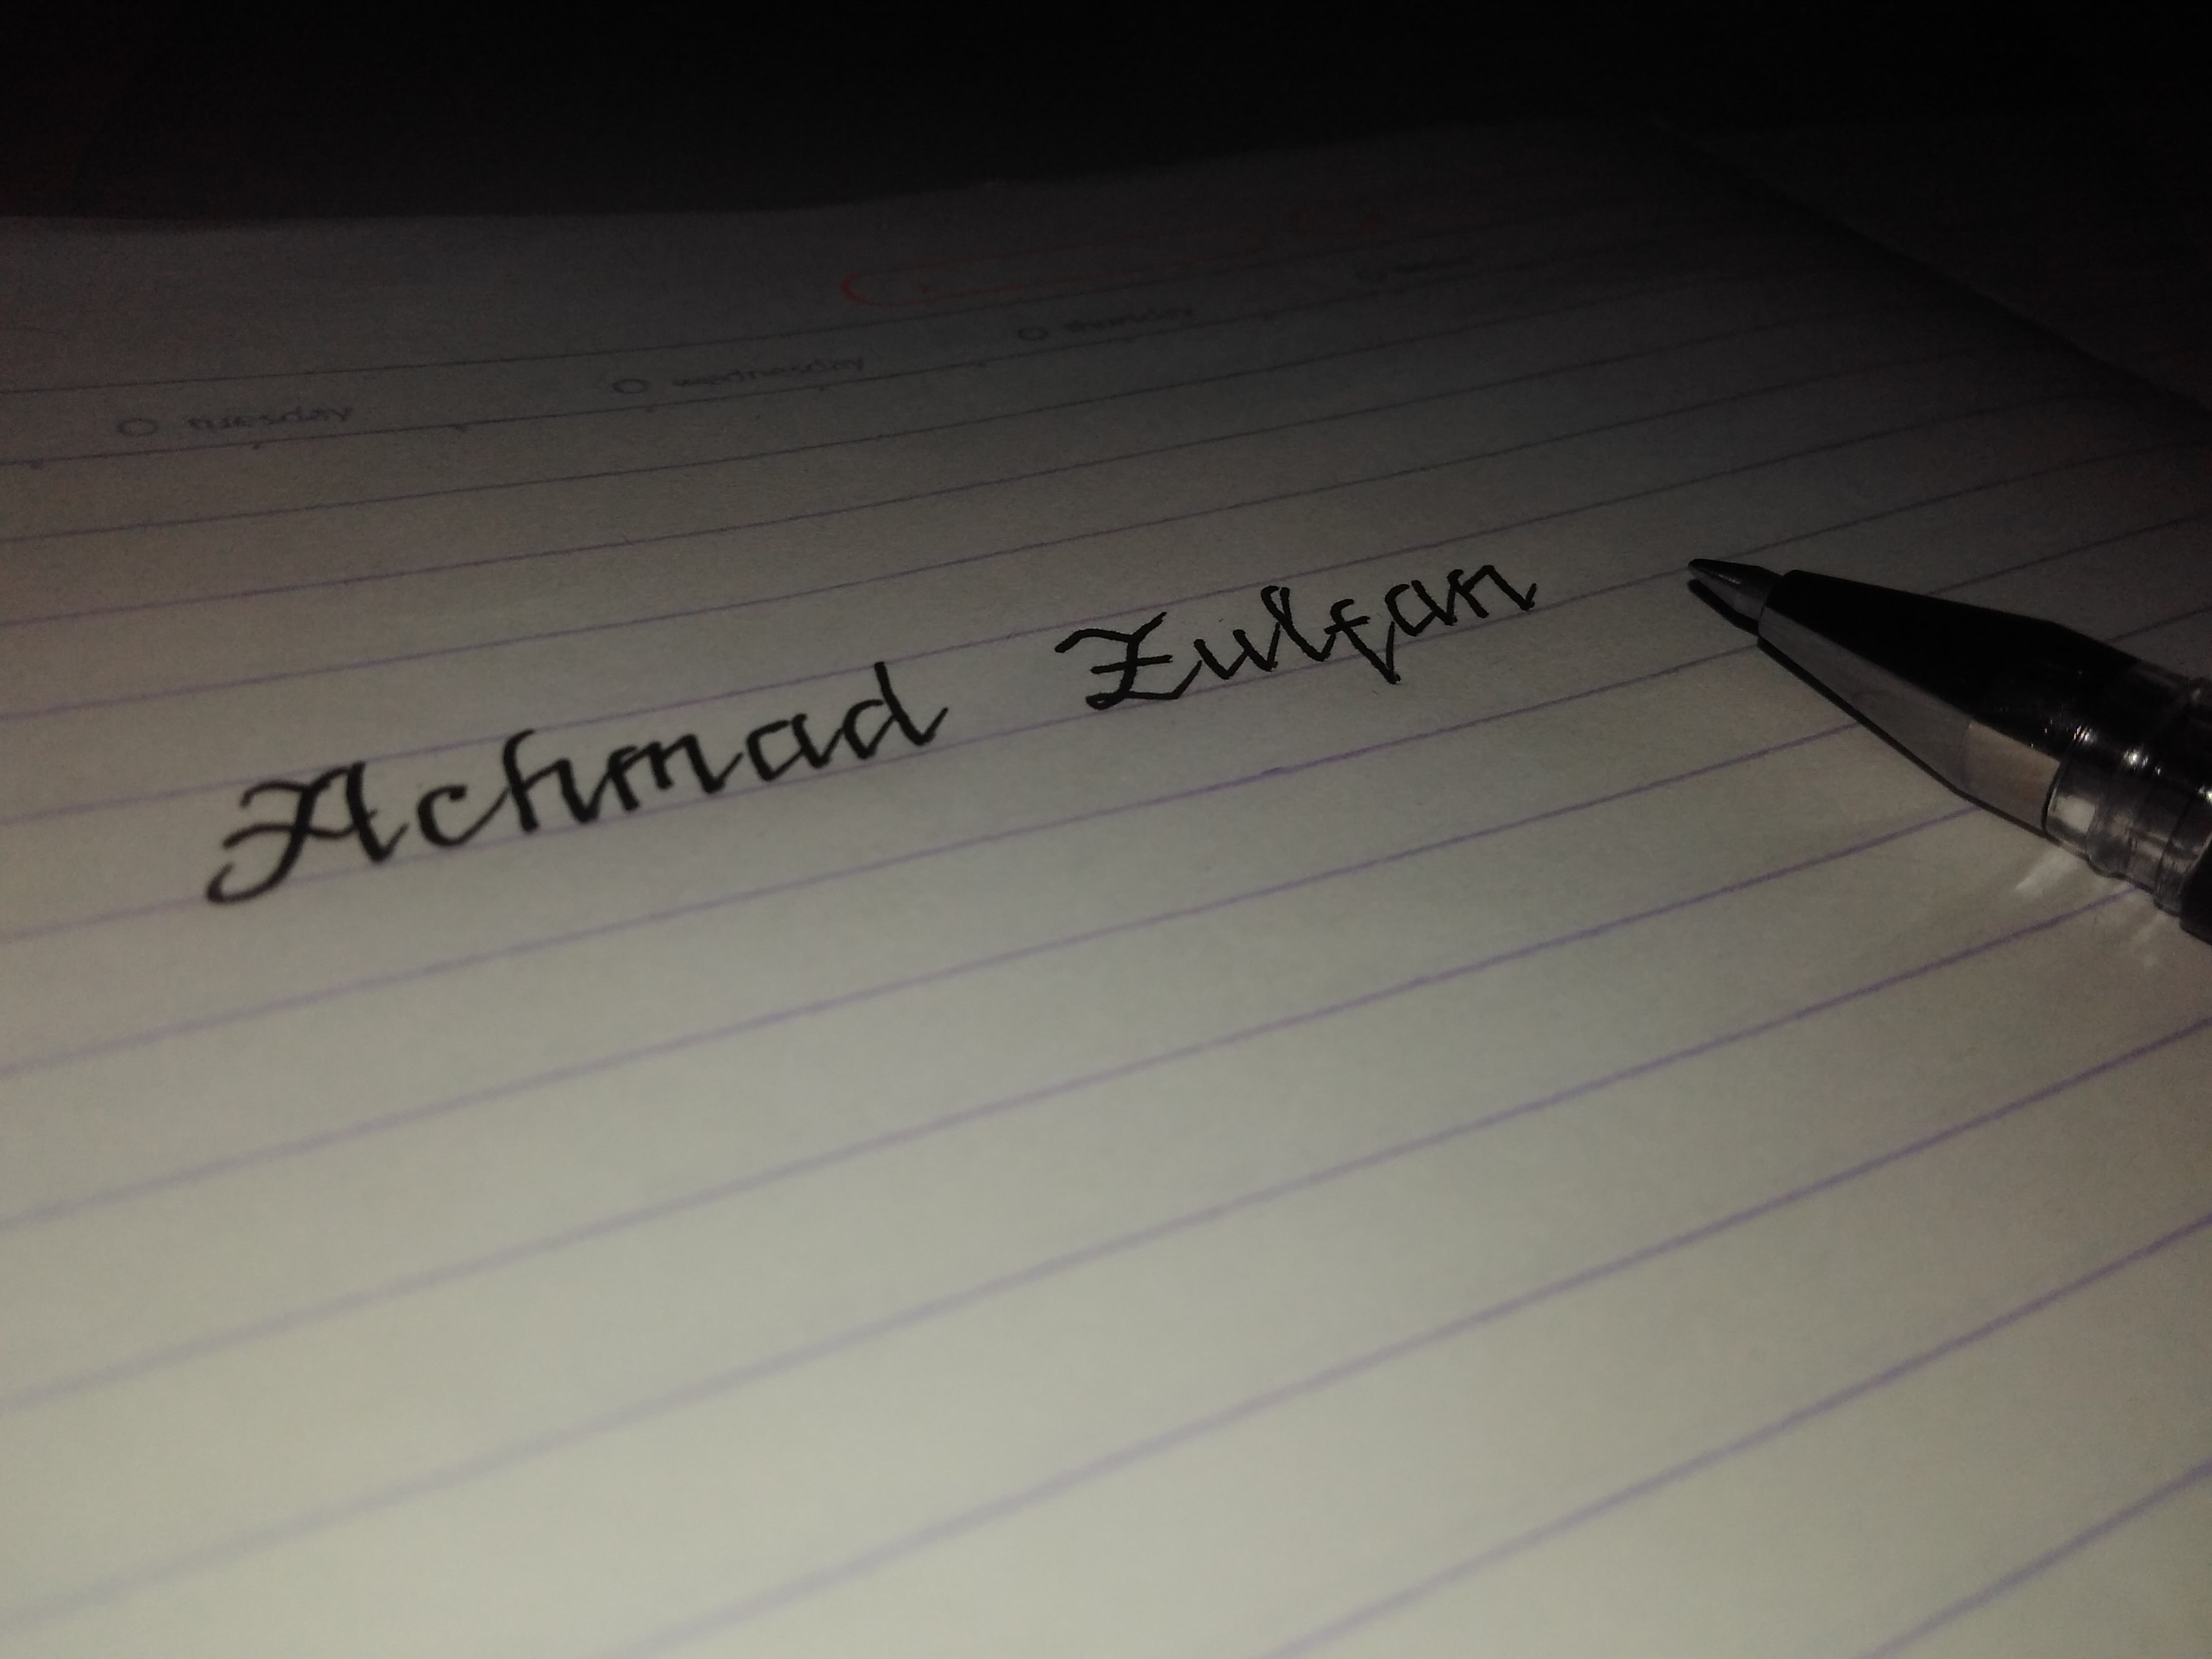 tuesday wednesday thursday
Achmad Zulfan